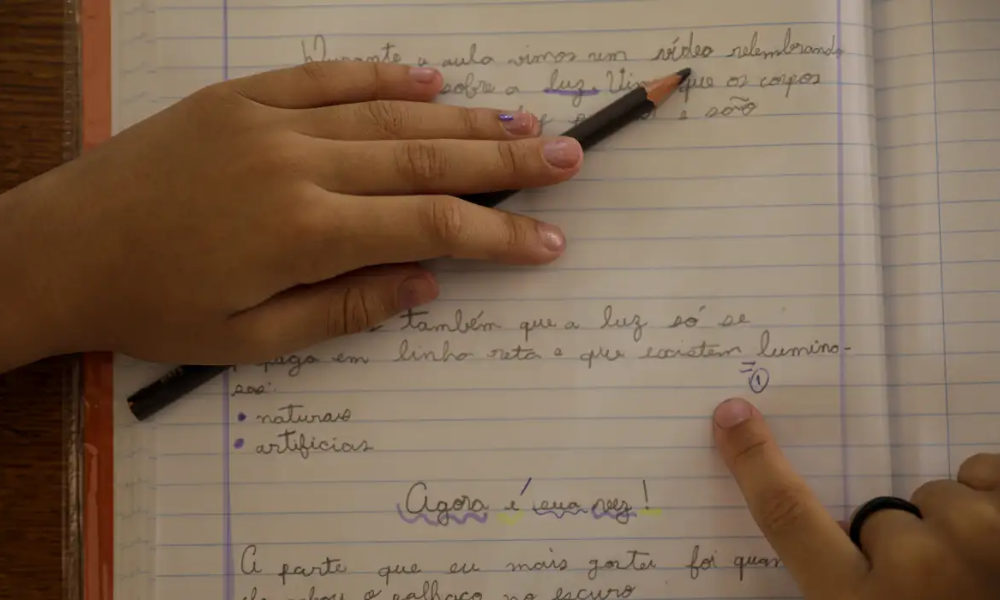 Durante a aula vimos um vídeo relembrando
sobre a luz. que os corpos
e são
também que a luz só se
em linha reta e que existem lumino-
sas:
=
①
• naturais
• artificias
Agora é sua vez!
A parte que eu mais gostei foi
o palhaço no escuro